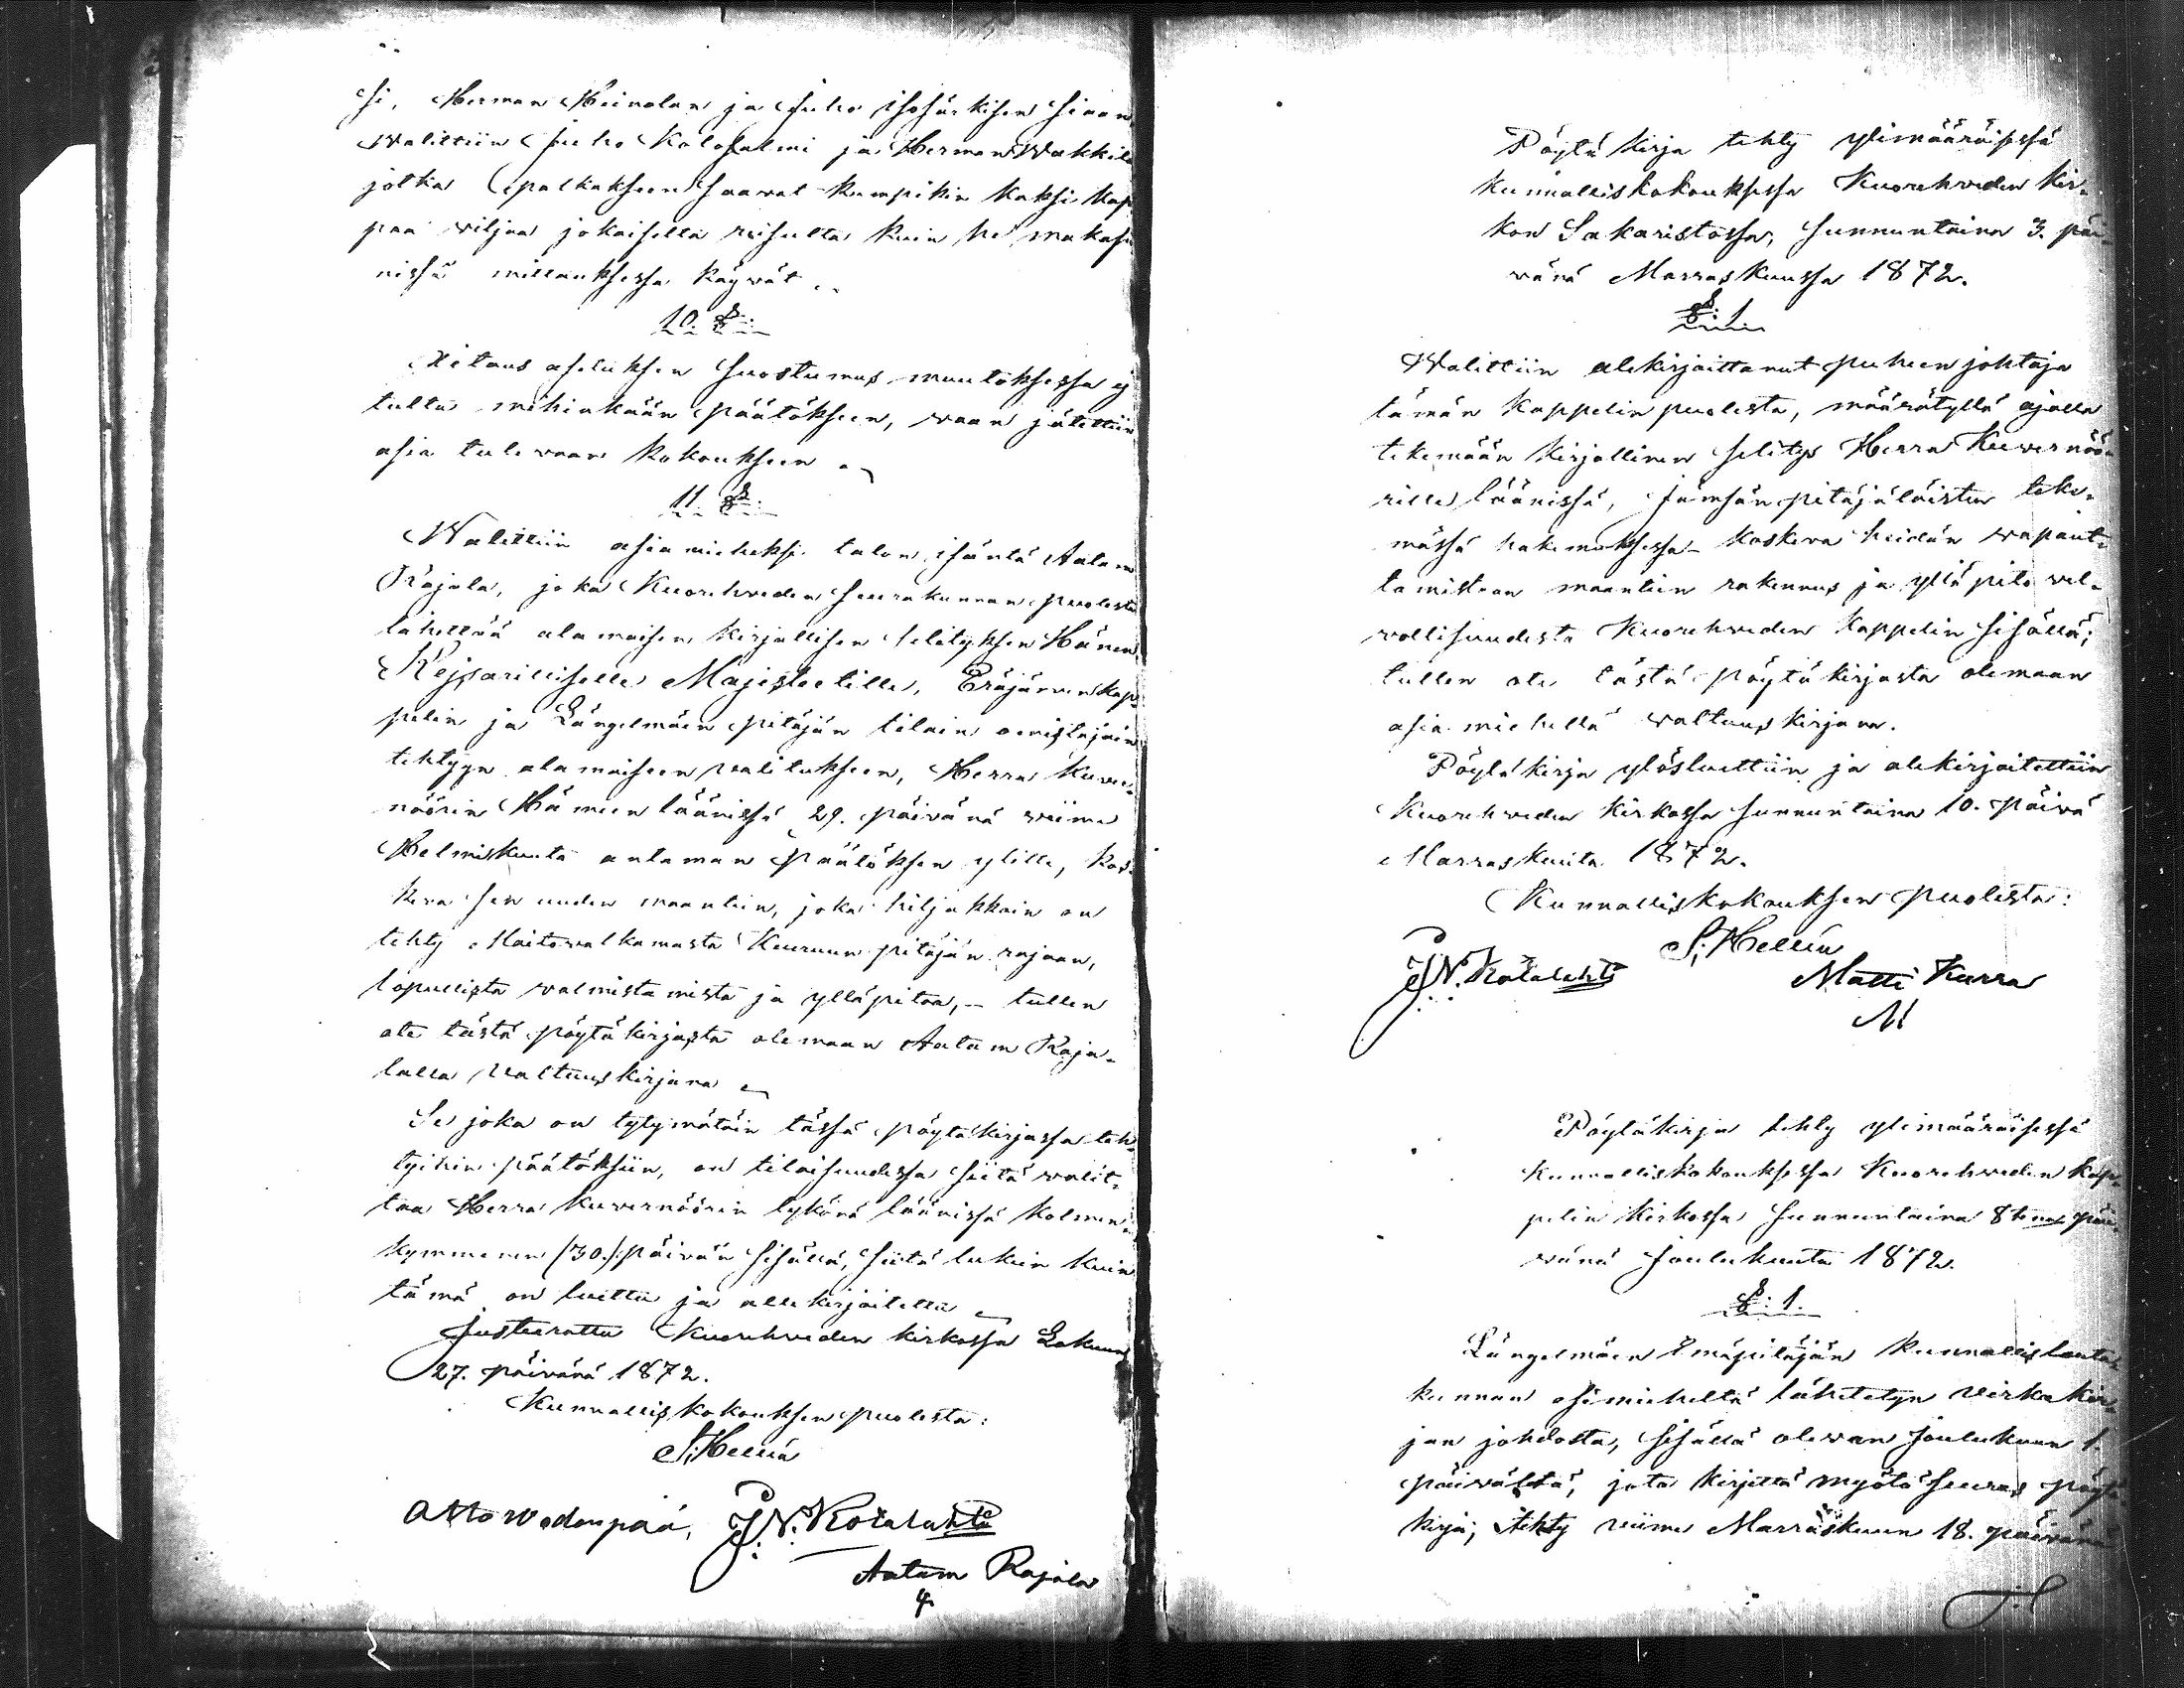 si, Herman Heinolan ja Juho Isosärkisen siaan
Walittiin Juho Kalosalmi ja Herman Wakkila
jotka palkakseen saawat kumpikin kaksi kap
paa wiljaa jokaisella reisulla kuin he makasi
nissä mittauksessa käywät.
10. §:
Ditaus asetuksen suostumus muutoksessa ej
tultu mihinkään päätökseen, waan jätettiin
asia tulewaan kokoukseen.
11. §:
Walittiin asiamieheksi talon isäntä Aatam
Rajala, joka Kuorehweden seurakunnan puolesta
lähettää alamaisen kirjallisen selityksen Hänen
Kejsarilliselle Majesteetille, Eräjärwen kap¬
pelin ja Längelmäen pitäjän tilain omistajain
tehtyyn alamaiseen walitukseen, Herra Kuwer¬
nöörin Hämeen läänissä 29. päiwänä wiime
Helmikuuta antaman päätöksen ylitte, kos¬
kewa sen uuden maantien, joka hiljakkain on
tehty Maitowalkamasta Keuruun pitäjän rajaan,
lopullista walmistamista ja ylläpitoa, – tullen
ote tästä pöytäkirjasta olemaan Aatam Raja¬
lalla Waltuuskirjana
Se joka on tytymätöin tässä pöytäkirjassa teh¬
tyihin päätöksiin, on tilaisuudessa siitä walit¬
taa Herra Kuwernöörin tykönä läänissä kolmen
kymmenen (30.) päiwän sisällä, siitä lukein kuin
tämä on luettu ja allekirjoitettu
Justeerattu Kuorehweden kirkossa Lokuun
27. päiwänä 1872.
Kunnalliskokouksen puolesta:
S. Hellén
Otto Wedenpää, J. N. Kotalahti
Aatam Rajala
4
Pöytäkirja tehty ylimääräisessä
kunnalliskokouksessa Kuorehweden kir¬
kon Sakaristossa, sunnuntaina 3. päi¬
wänä Marraskuussa 1872.
§: 1
Walittiin alekirjoittanut puheenjohtaja
tämän kappelin puolesta, määrätyllä ajalla
tekemään kirjallinen selitys Herra Kuwernöö¬
rille läänissä, Jämsän pitäjäläisten teke¬
mässä hakemuksessa – koskewa heidän wapaut¬
tamistaan maantien rakennus ja ylläpito wel¬
wollisuudesta Kuorehweden kappelin sisällä;
tullen ote tästä pöytäkirjasta olemaan
asiamiehellä waltuuskirjana.
Pöytäkirja ylösluettiin ja alekirjoitettiin
Kuorehweden kirkossa sunnuntaina 10. päiwä
Marraskuuta 1872.
Kunnalliskokouksen puolesta:
S. Hellén
J. N. Kotalahti Matti Kurra
M
Pöytäkirja tehty ylimääräisessä
kunnalliskokouksessa Kuorehweden kap¬
pelin kirkossa sunnuntaina 8tena päi¬
wänä Joulukuuta 1872.
§: 1.
Längelmäen Emäpitäjän kunnallislauta¬
kunnan esimieheltä lähetetyn wirkakir¬
jan johdosta, sisällä olewan Joulukuun 1.
päiwältä, jota kirjettä myötä seuras pöytä
kirja, tehty wiime Marraskuun 18. päiwänä